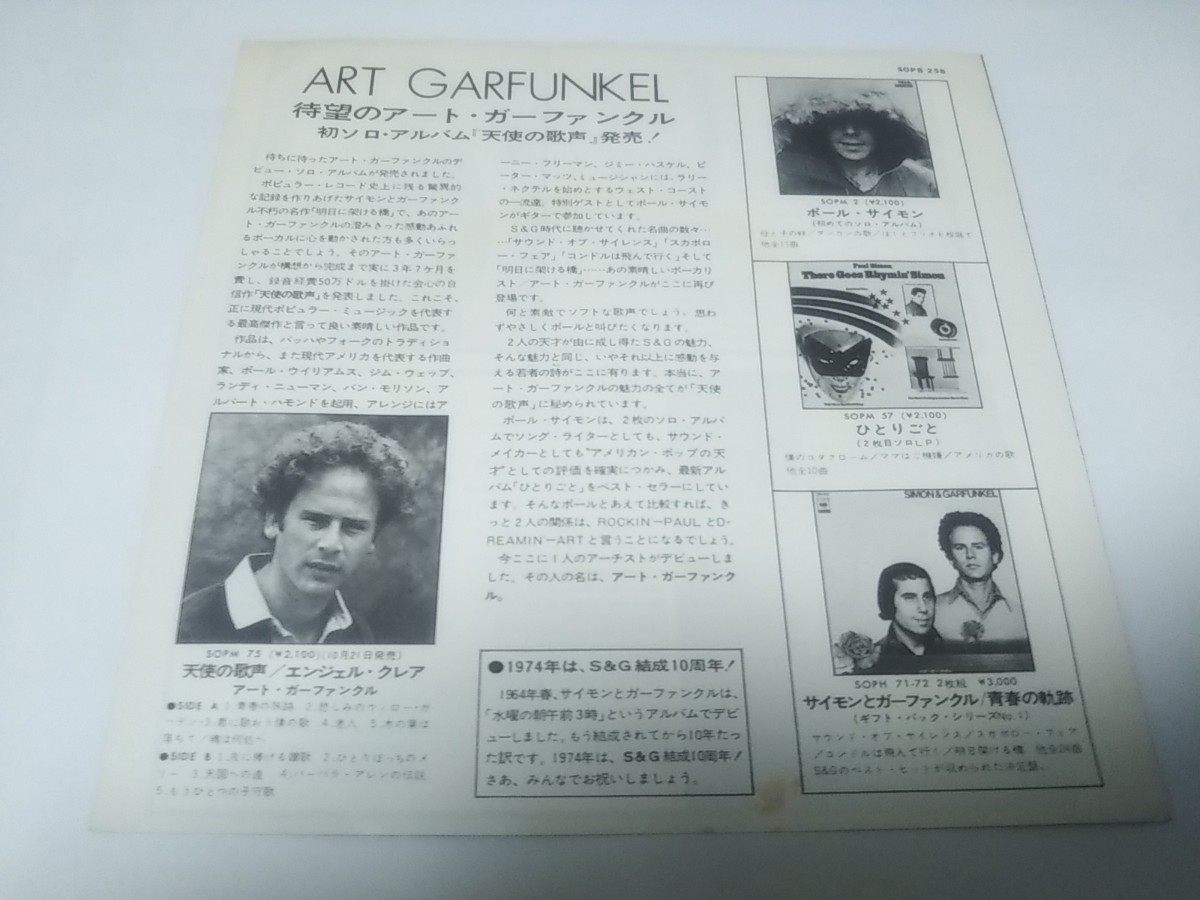 ART GARFUNKEL
待望のアート・ガーファンクル
初ソロ・アルバム『天使の歌声』発売!
待ちに待ったアート・ガーファンクルのデ
ビュー・ソロ・アルバムが発売されました。
ポピュラー・レコード史上に残る驚異的
な記録を作りあげたサイモンとガーファンク
ル不朽の名作「明日に架ける橋」で、あのアー
ト・ガーファンクルの澄みきった感動あふれ
るボーカルに心を動かされた方も多くいらっ
しゃることでしょう。そのアート・ガーファ
ンクルが構想から完成まで実に3年7ケ月を
費し、録音経費50万ドルを掛けた会心の自
信作「天使の歌声」を発表しました。これこそ、
正に現代ポピュラー・ミュージックを代表す
る最高傑作と言って良い素晴しい作品です。
作品は、バッハやフォークのトラディショ
ナルから、また現代アメリカを代表する作曲
家、ポール・ウイリアムス、ジム・ウェッブ、
ランディ・ニューマン、バン・モリソン、ア
ルバート・ハモンドを起用、アレンジにはア
SOPM 75 (¥2,100)(10月21日発売)
天使の歌声/エンジェル・クレア
アート・ガーファンクル
●SIDE A 1.青春の旅路 2.悲しみのウィロー・ガ
ーデン 3.君に歌おう僕の歌 4.老人 5.木の葉は
落ちて/魂は何処へ
●SIDE B 1.友に捧げる讃歌 2.ひとりぼっちのメ
リー 3.天国への道 4.バーバラ・アレンの伝説
5.もうひとつの子守歌
ーニー・フリーマン、ジミー・ハスケル、ピ
ーター・マッツ、ミュージシャンには、ラリー
・ネクテルを始めとするウェスト・コースト
の一流達。特別ゲストとしてポール・サイモ
ンがギターで参加しています。
S&G時代に聴かせてくれた名曲の数々…
…「サウンド・オブ・サイレンス」「スカボロ
ー・フェア」「コンドルは飛んで行く」そして
「明日に架ける橋」……あの素晴しいボーカリ
スト/アート・ガーファンクルがここに再び
登場です。
何と素敵でソフトな歌声でしょう。思わ
ずやさしくポールと叫びたくなります。
2人の天才が由に成し得たS&Gの魅力、
そんな魅力と同じ、いやそれ以上に感動を与
える若者の詩がここに有ります。本当に、ア
ート・ガーファンクルの魅力の全てが「天使
の歌声」に秘められています。
ポール・サイモンは、2枚のソロ・アルバ
ムでソング・ライターとしても、サウンド・
メイカーとしても"アメリカン・ポップの天
才"としての評価を確実につかみ、最新アル
バム「ひとりごと」をベスト・セラーにしてい
ます。そんなポールとあえて比較すれば、き
っと2人の関係は、ROCKIN―PAULとD-
REAMIN―ARTと言うことになるでしょう。
今ここに1人のアーチストがデビューしま
した。その人の名は、アート・ガーファンク
ル。
●1974年は、S&G結成10周年!
1964年春、サイモンとガーファンクルは、
「水曜の朝午前3時」というアルバムでデビ
ューしました。もう結成されてから10年たっ
た訳です。1974年は、S&G結成10周年!
さあ、みんなでお祝いしましょう。
SOPB 258
SOPM 2 (¥2,100)
ポール・サイモン
(初めてのソロ・アルバム)
他全11曲
Paul Simon
There Goes Rhymin' Simon
SOPM 57 (¥2,100)
ひとりごと
(2枚目ソロLP)
僕のコダクローム/ママはご機嫌/アメリカの歌
他全10曲
SIMON & GARFUNKEL
SOPH 71-72 2枚組 ¥3,000
サイモンとガーファンクル/青春の軌跡
(ギフト・パック・シリーズNo.1)
サウンド・オブ・サイレンス/スカボロー・フェア
/コンドルは飛んで行く/明日に架ける橋 他全24曲
S&Gのベスト・ヒットが収められた決定盤。